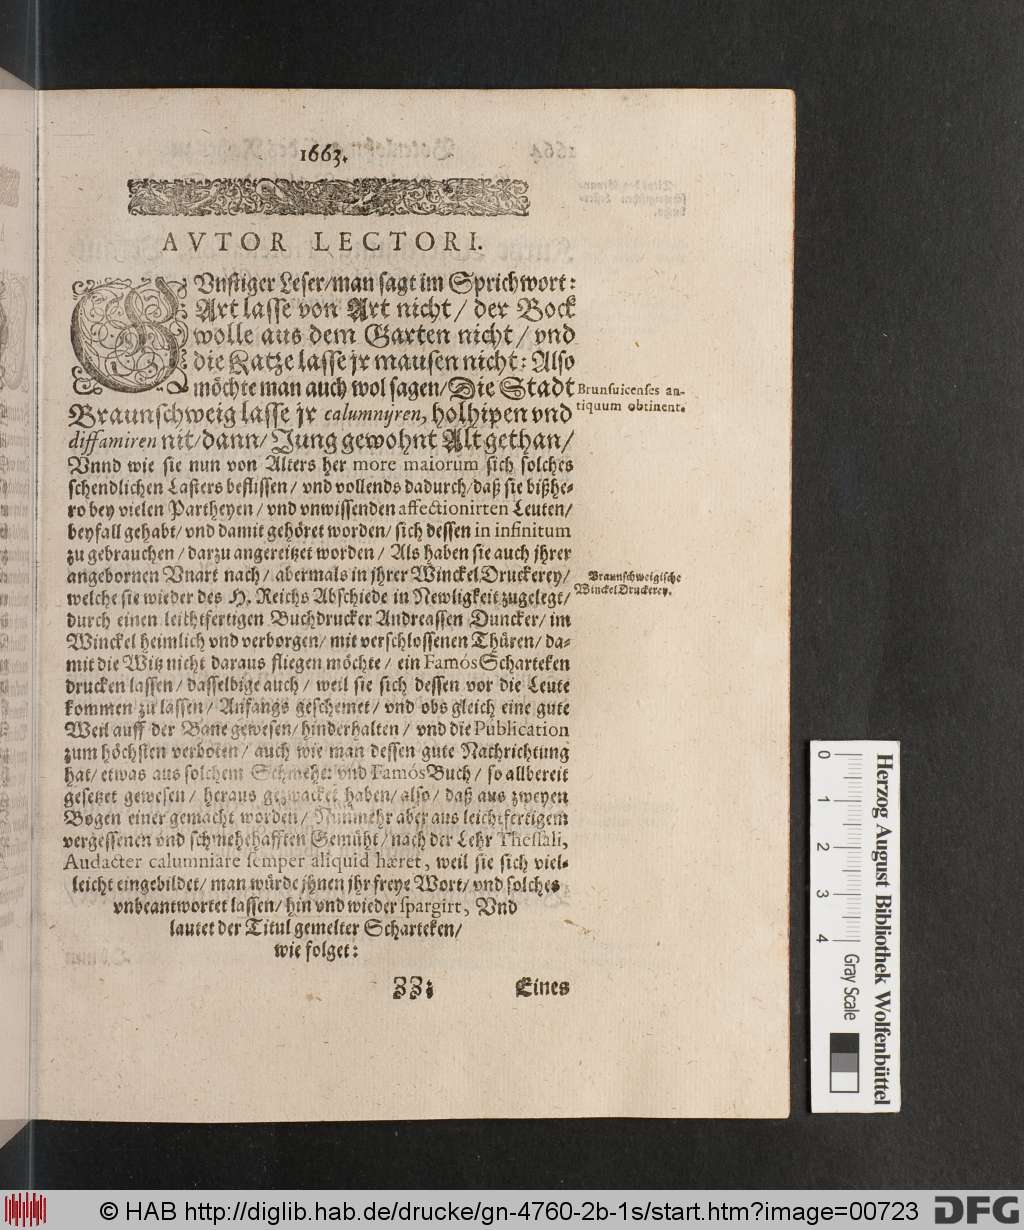 1663.
AVTOR LECTORI.
GVnstiger Leser/ man sagt im Sprichwort:
Art lasse von Art nicht/ der Bock
wolle aus dem Garten nicht/ vnd
die Katze lasse jr mausen nicht: Also
möchte man auch wol sagen/ Die Stadt
Brunsuicenses an-
tiquum obtinent.
Braunschweig lasse jr calumnyren, holhipen vnd
diffamiren nit/ dann/ Jung gewohnt Alt gethan/
Vnnd wie sie nun von Alters her more maiorum sich solches
schendlichen Lasters beflissen/ vnd vollends dadurch/ daß sie bißhe-
ro bey vielen Partheyen/ vnd vnwissenden affectionirten Leuten/
beyfall gehabt/ vnd damit gehöret worden/ sich dessen in infinitum
zu gebrauchen/ darzu angereitzet worden/ Als haben sie auch jhrer
angebornen Vnart nach/ abermals in jhrer Winckel Druckerey/
Braunschweigische
Winckel Druckerey.
welche sie wieder des H. Reichs Abschiede in Newligkeit zugelegt/
durch einen leichtfertigen Buchdrucker Andreassen Duncker/ im
Winckel heimlich vnd verborgen/ mit verschlossenen Thüren/ da-
mit die Witz nicht daraus fliegen möchte/ ein Famós Scharteken
drucken lassen/ dasselbige auch/ weil sie sich dessen vor die Leute
kommen zu lassen/ Anfangs geschemet/ vnd obs gleich eine gute
Weil auff der Bane gewesen/ hinderhalten/ vnd die Publication
zum höchsten verboten/ auch wie man dessen gute Nachrichtung
hat/ etwas aus solchem Schmehe: vnd Famós Buch/ so allbereit
gesetzet gewesen/ heraus gezwacket haben/ also/ daß aus zweyen
Bogen einer gemacht worden/ Nunmehr aber aus leichtfertigem
vergessenen vnd schmehehafften Gemüht/ nach der Lehr Thessali,
Audacter calumniare semper aliquid hæret, weil sie sich viel-
leicht eingebildet/ man würde jhnen jhr freye Wort/ vnd solches
vnbeantwortet lassen/ hin vnd wieder spargirt, Vnd
lautet der Titul gemelter Scharteken/
wie folget:
Eines
0 1 2 3 4
Gray Scale
Herzog August Bibliothek Wolfenbüttel
© HAB http://diglib.hab.de/drucke/gn-4760-2b-1s/start.htm?image=00723
DFG